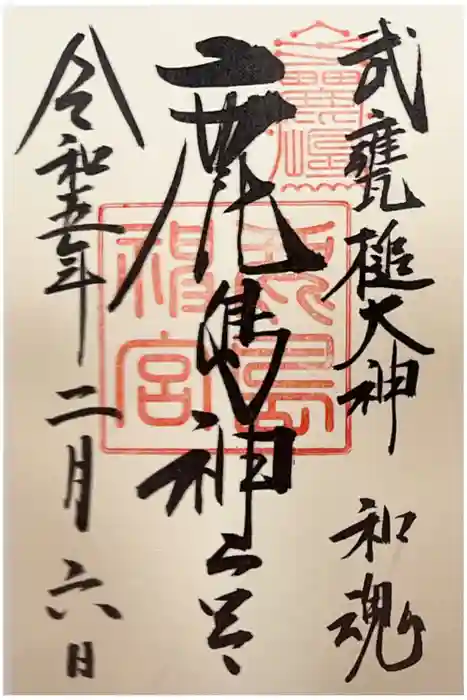 武甕槌大神 和魂
鹿島神宮
令和五年二月六日
鹿島
神宮